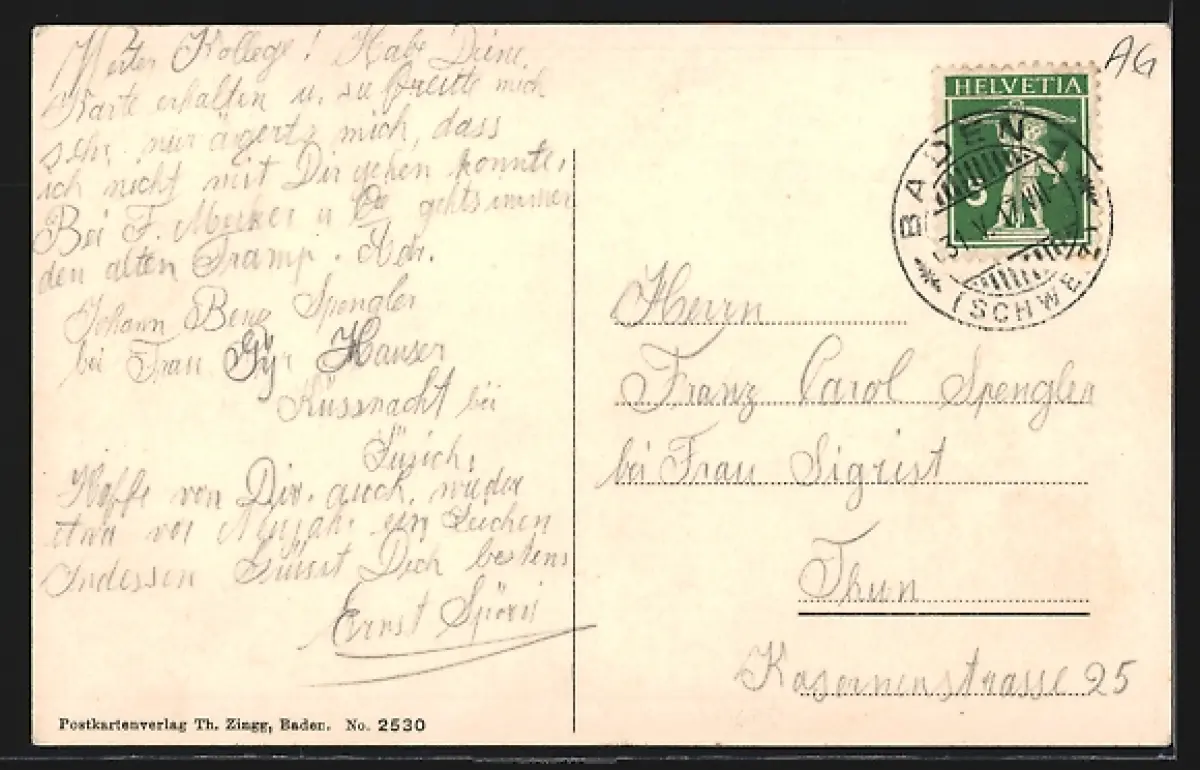 Werter Kollege! Habe Deine
Karte erhalten u. sie freute mich
sehr nur ärgerts mich, dass
ich nicht mit Dir gehen konnte.
Bei F. Merker u Co gehts immer
den alten Tramp. Adr.
Johann Spengler
bei Frau Hauser
Küssnacht bei
Zürich.
Hoffe von Dir auch wieder
etwa vor Neujahr ein Zeichen
Indessen Grüsst Dich bestens
Ernst Spörri
Postkartenverlag Th. Zingg, Baden. No. 2530
AG
HELVETIA
5
BADEN
31.V.17.VII
(SCHWEIZ)
Herrn
Franz Carol Spengler
bei Frau Sigrist
Thun
Kasernenstrasse 25